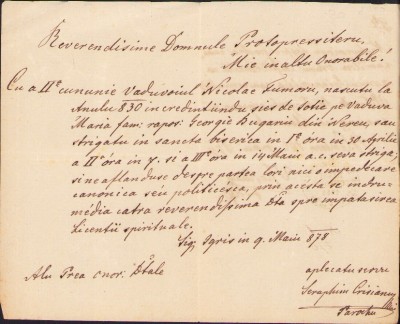 Reverendisime Domnule Protopressiteru,
Mie inaltu Onorabile!
Cu a II<sup>a</sup> cununie Vaduvoiul Nicolae Fumoru, nasutu la
Anulu 830 incredintiindu sies de sotie pe Vaduva
Maria fam: rapos: Georgie Bugariu din Nereu, sau
strigatu in sancta biserica in I<sup>a</sup> óra in 30 Aprilii
a II<sup>a</sup> óra in 7. si a III<sup>a</sup> óra in 14 Maiu a.c. seva striga,
si ne aflanduse despre partea lori nici o impedecare
canonica seu politicésca, prin acesta se indru-
média catra reverendissima Dta spre impatasirea
Licentii spirituale.
Sig. Igris in 9. Maiu 878
Alu Prea onor: Dtale
aplecatu servu
Seraphim Crisianu
Parochu